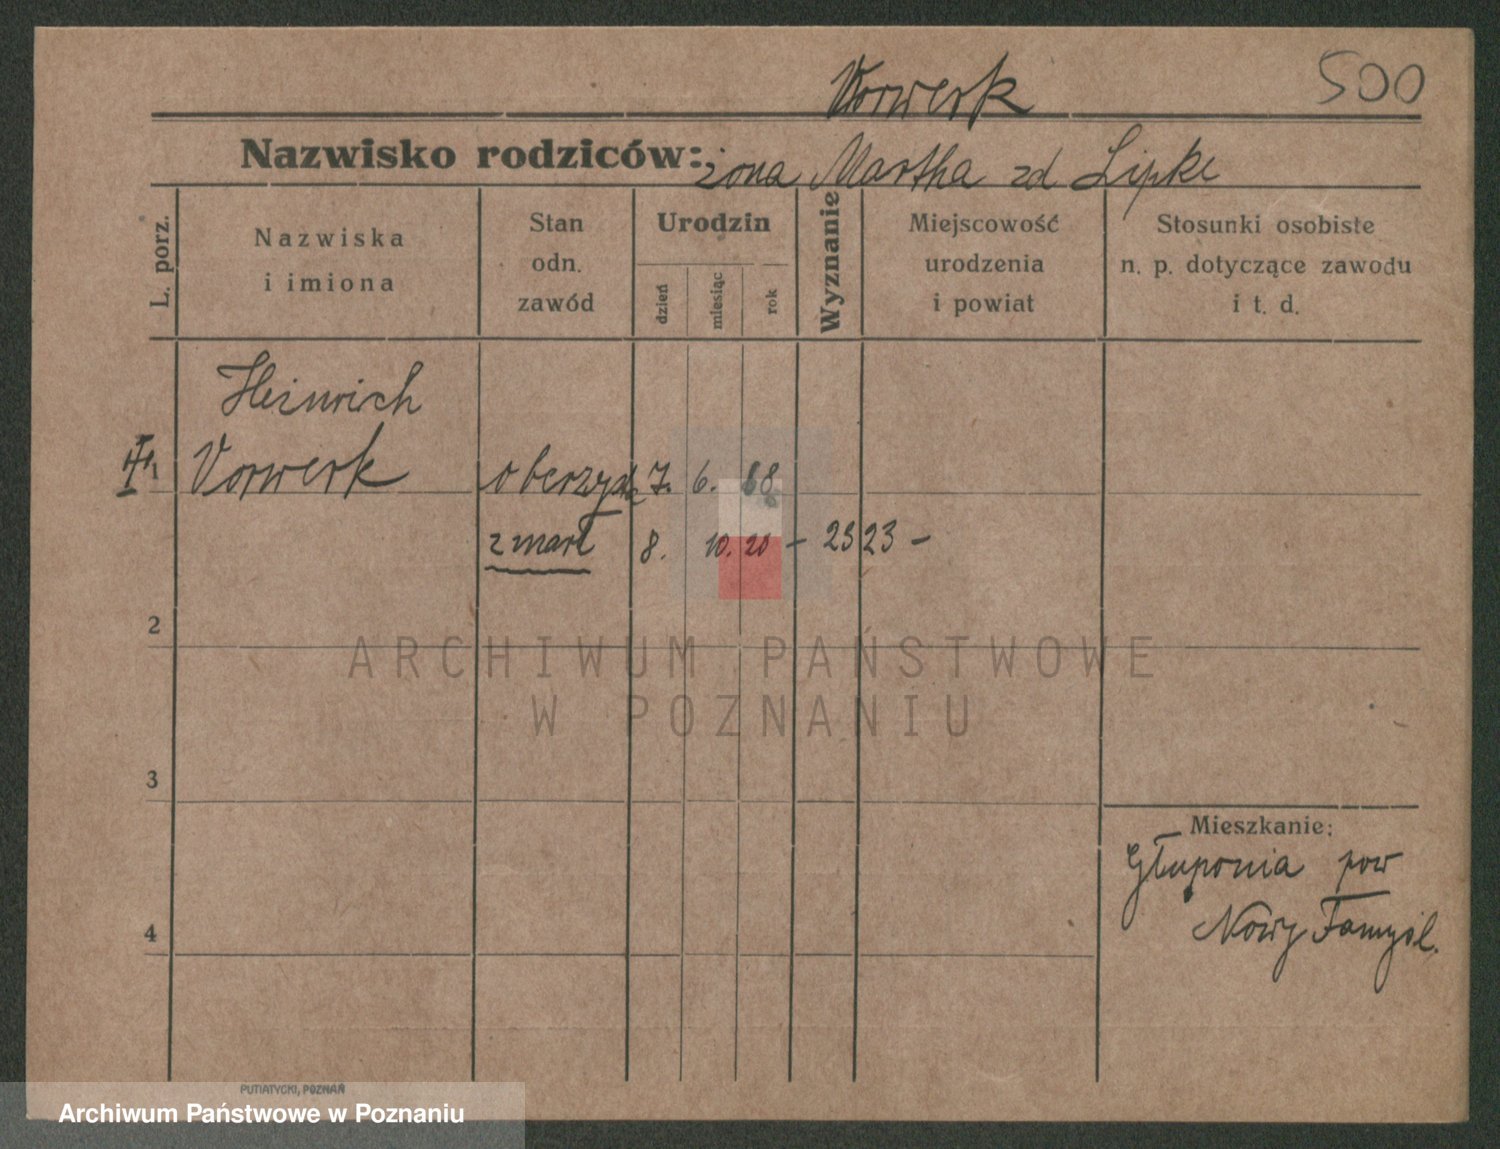 500
Vorwerk
Nazwisko rodziców: żona Martha zd Lipke
L. porz.
Nazwiska i imiona
Stan odn. zawód
Urodzin
dzień
miesiąc
rok
Wyznanie
Miejscowość urodzenia i powiat
Stosunki osobiste n. p. dotyczące zawodu i t. d.
Heinrich
1 Vorwerk oberżysta 7. 6. 88
zmarł 8. 10. 20 – 23 23 –
2
ARCHIWUM PAŃSTWOWE
W POZNANIU
3
Mieszkanie:
Głuponia pow
Nowy Tomyśl.
4
PUTIATYCKI, POZNAŃ
Archiwum Państwowe w Poznaniu